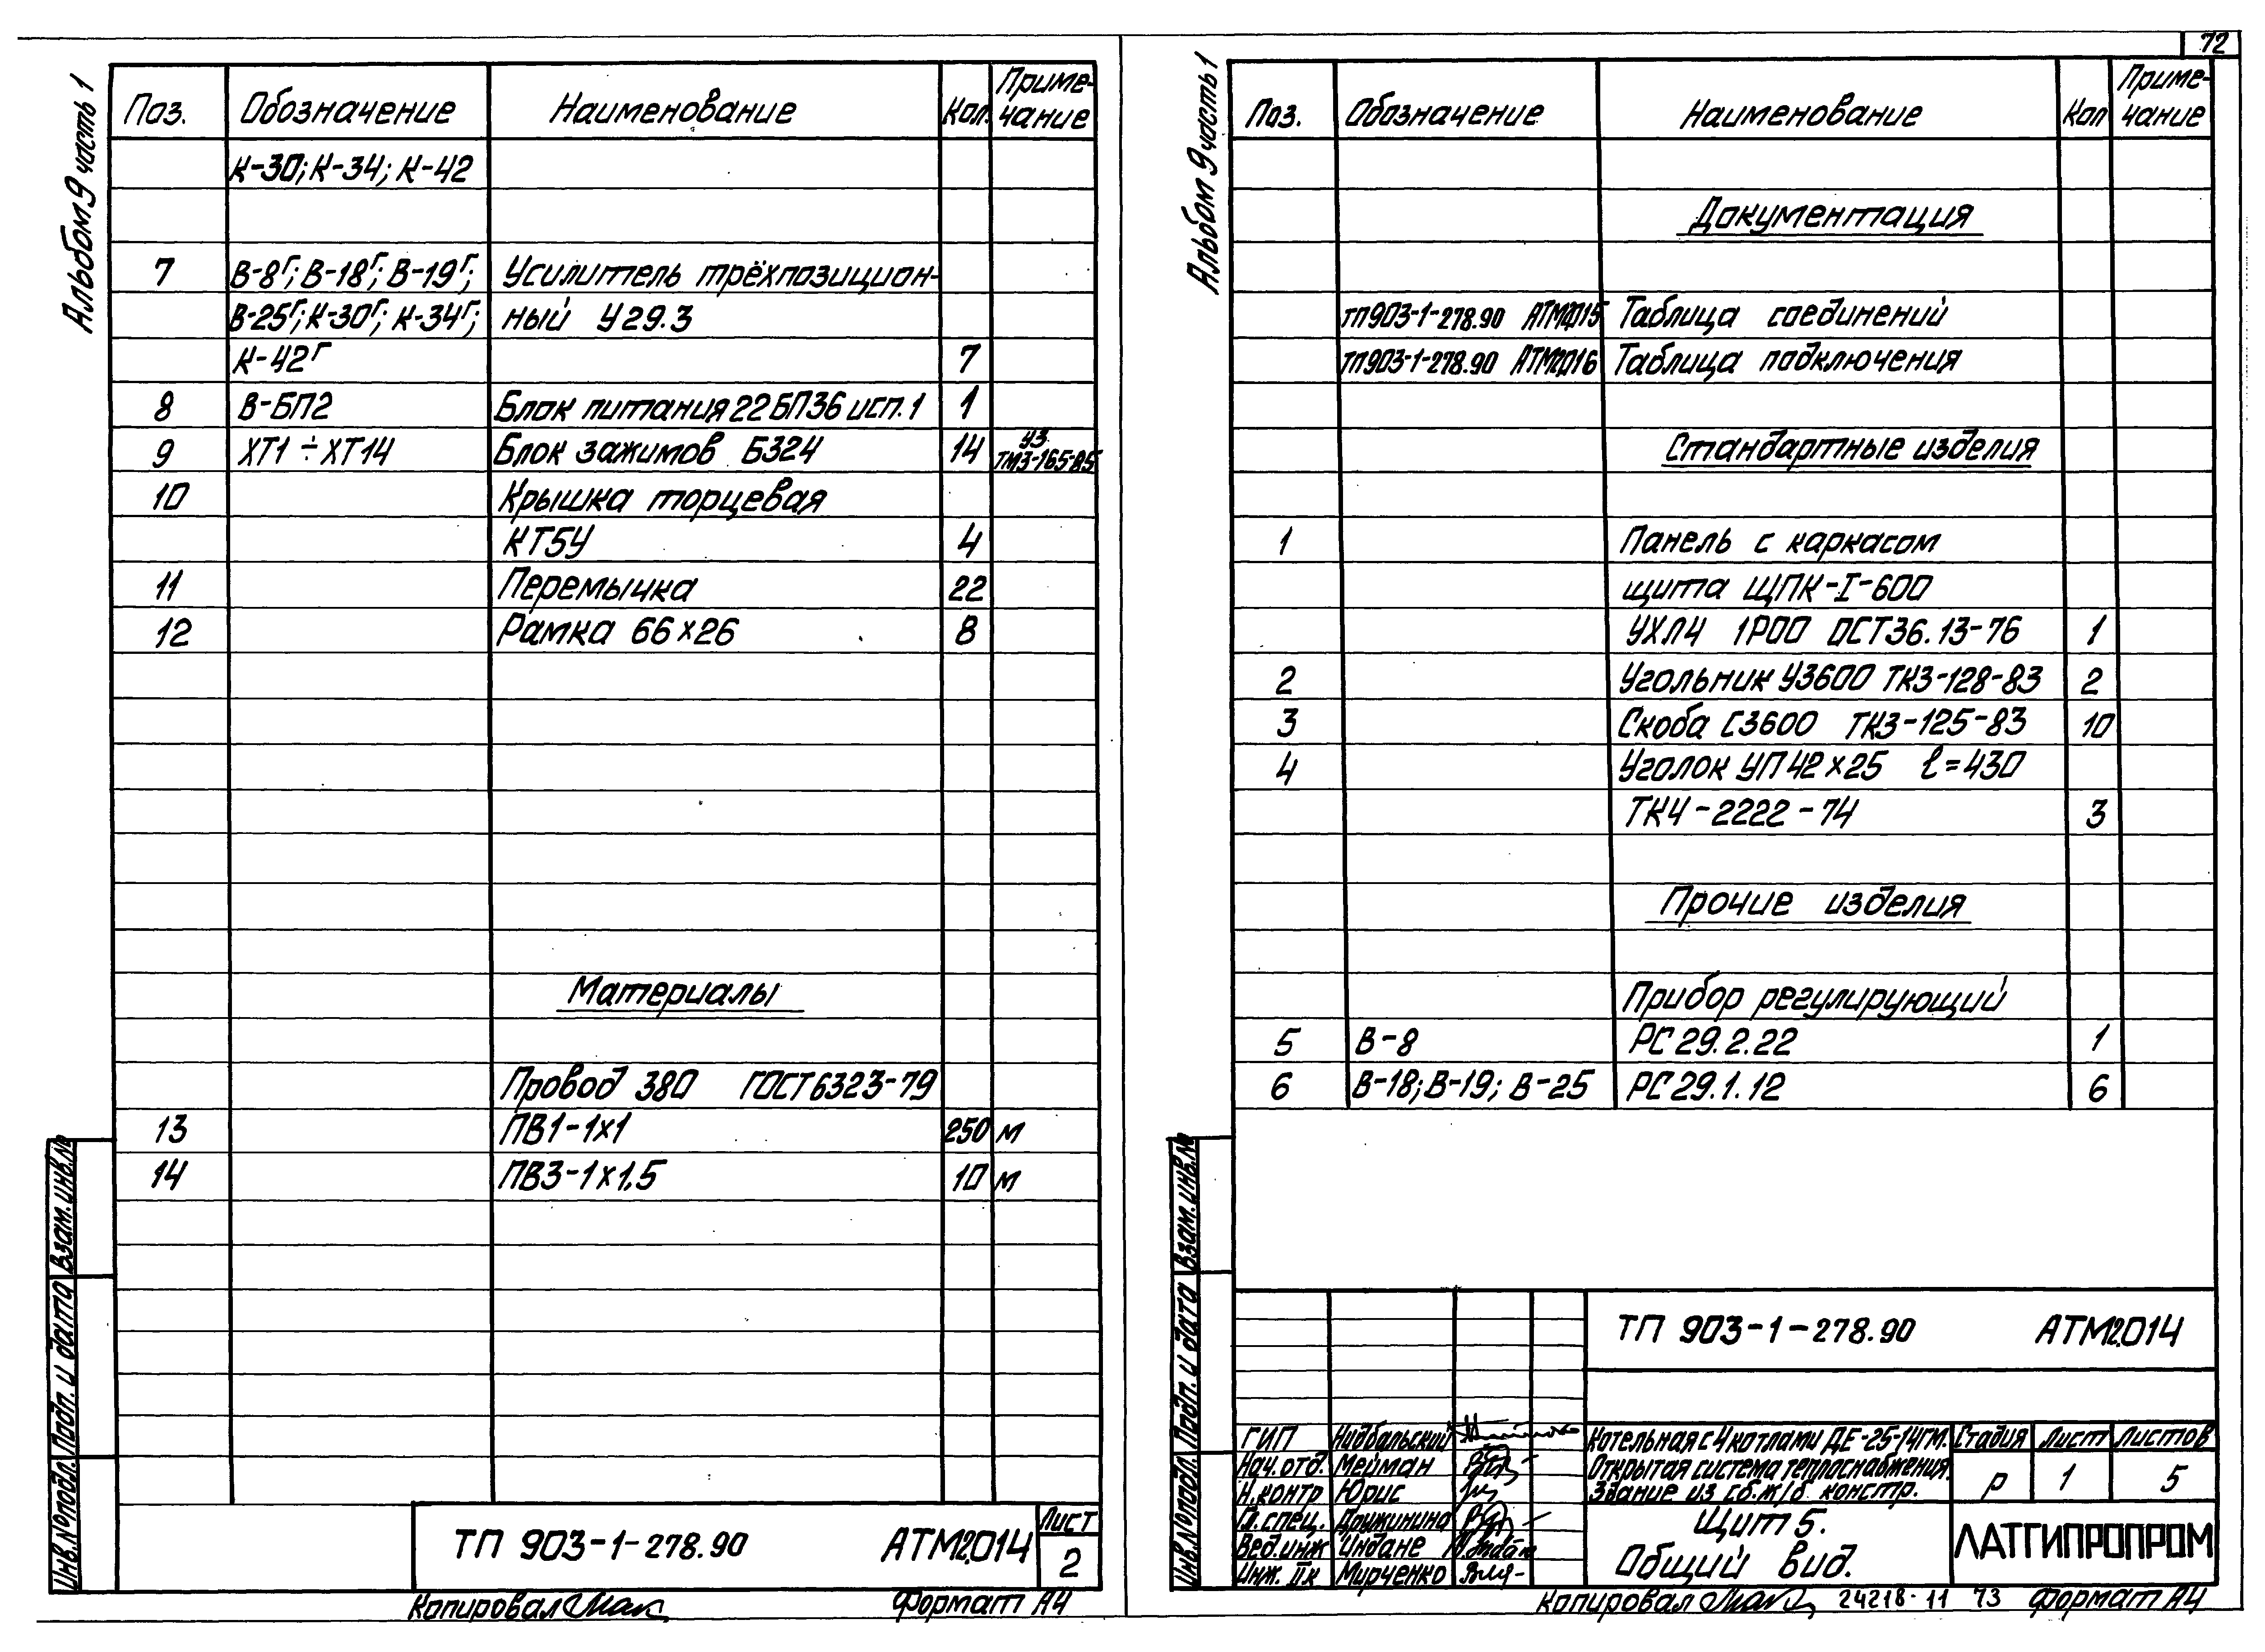 72
Альбом 9 часть 1
Поз. Обозначение Наименование Кол. Приме-
чание
К-30; К-34; К-42
7 В-8г; В-18г; В-19г; Усилитель трёхпозицион-
В-25г; К-30г; К-34г; ный У29.3
К-42г 7
8 В-БП2 Блок питания 22БП36 исп.1 1
9 ХТ1 ÷ ХТ14 Блок зажимов Б324 14 У3
ТМ3-165-85
10 Крышка торцевая
КТ5У 4
11 Перемычка 22
12 Рамка 66х26 8
Материалы
Провод 380 ГОСТ 6323-79
13 ПВ1-1х1 250 м
14 ПВ3-1х1,5 10 м
Взам. инв.№
Подп. и дата
Инв.№ подл.
ТП 903-1-278.90 АТМ2.014
Лист
2
Копировал Формат А4
Альбом 9 часть 1
Поз. Обозначение Наименование Кол Приме-
чание
Документация
ТП903-1-278.90 АТМ2.015 Таблица соединений
ТП903-1-278.90 АТМ2.016 Таблица подключения
Стандартные изделия
1 Панель с каркасом
щита ЩПК-I-600
УХЛ4 1Р00 ОСТ36.13-76 1
2 Угольник У3600 ТК3-128-83 2
3 Скоба С3600 ТК3-125-83 10
4 Уголок УП 42х25 ℓ=430
ТК4-2222-74 3
Прочие изделия
Прибор регулирующий
5 В-8 РС29.2.22 1
6 В-18; В-19; В-25 РС29.1.12 6
Взам. инв.№
Подп. и дата
Инв.№ подл.
ТП 903-1-278.90 АТМ2.014
ГИП Нидбальский
Нач.отд. Мейман
Н.контр Юрис
Гл.спец. Дружинина
Вед.инж Индане
Инж. IIк Мирченко
Котельная с 4 котлами ДЕ-25-14ГМ.
Открытая система теплоснабжения.
Здание из сб.ж/б констр.
Стадия Лист Листов
Р 1 5
Щит 5.
Общий вид.
ЛАТГИПРОПРОМ
Копировал 24218-11 73 Формат А4